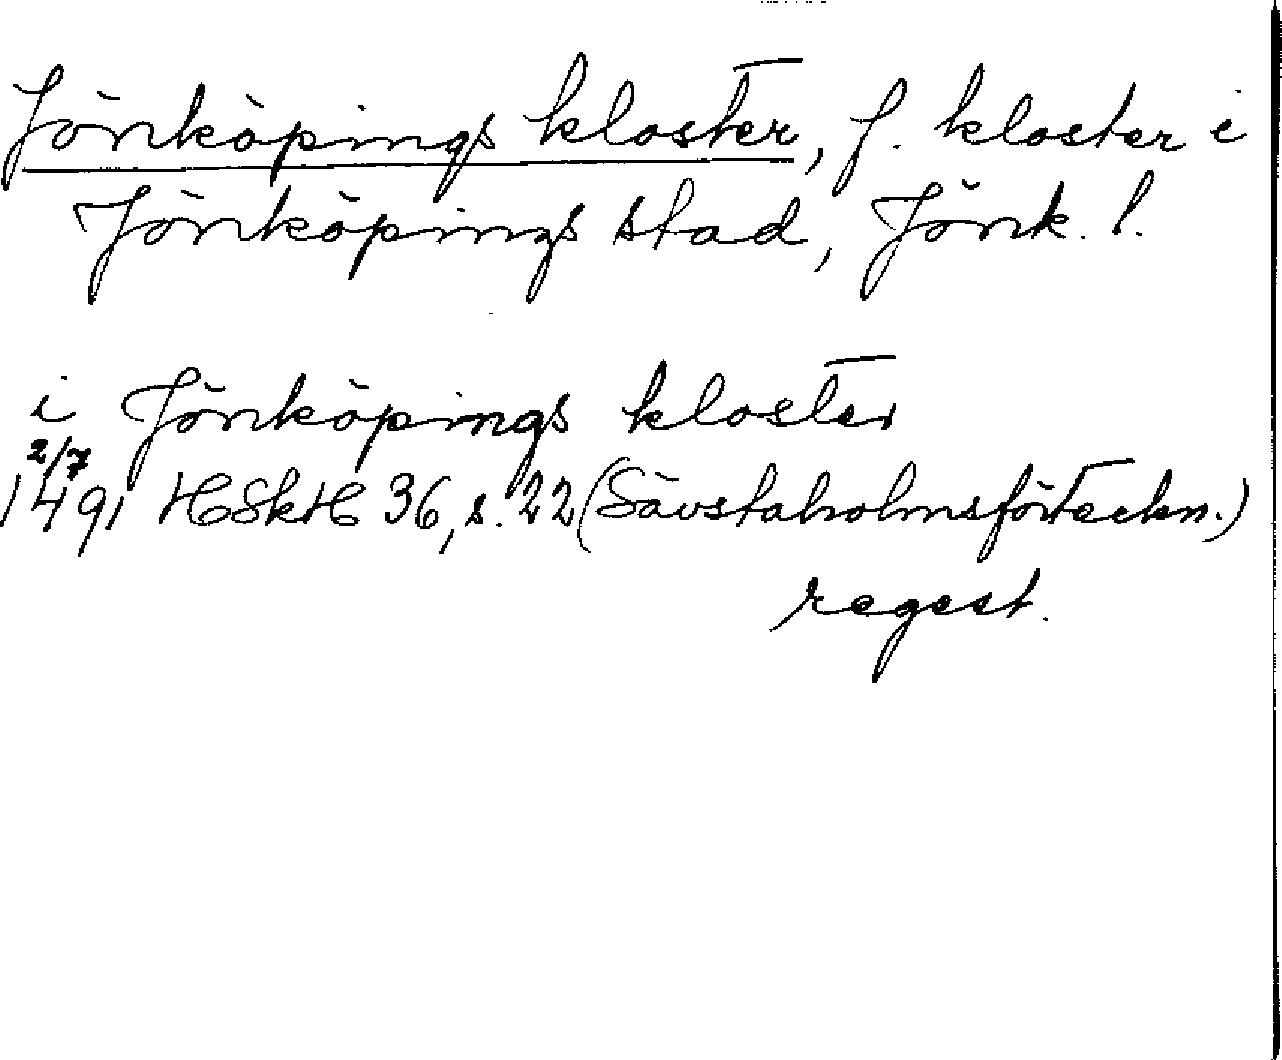 Jönköpings kloster, f. kloster i
Jönköpings stad, Jönk. l.
i Jönköpings kloster
2/7
1491 HSkH 36, s. 22 (Sävstaholmsförteckn.)
regest.